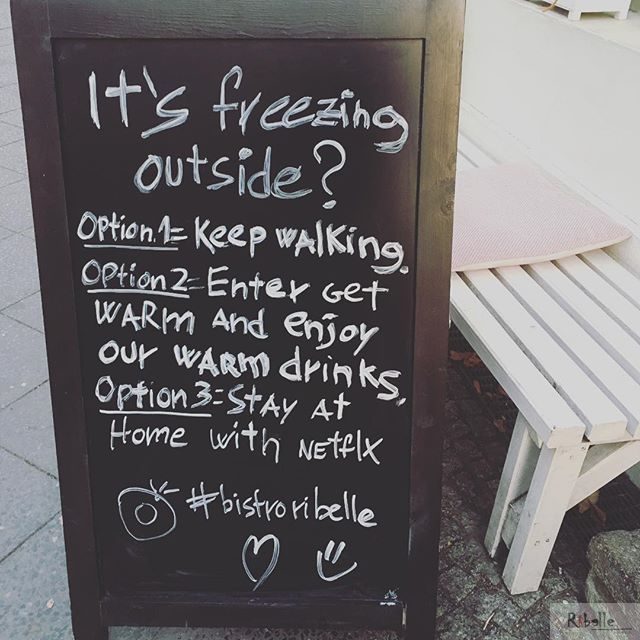 It's freezing
outside?
Option.1= Keep walking.
Option 2= Enter get
warm and enjoy
our warm drinks.
Option 3= Stay at
Home with Netflx
#bistroribelle
Ribelle